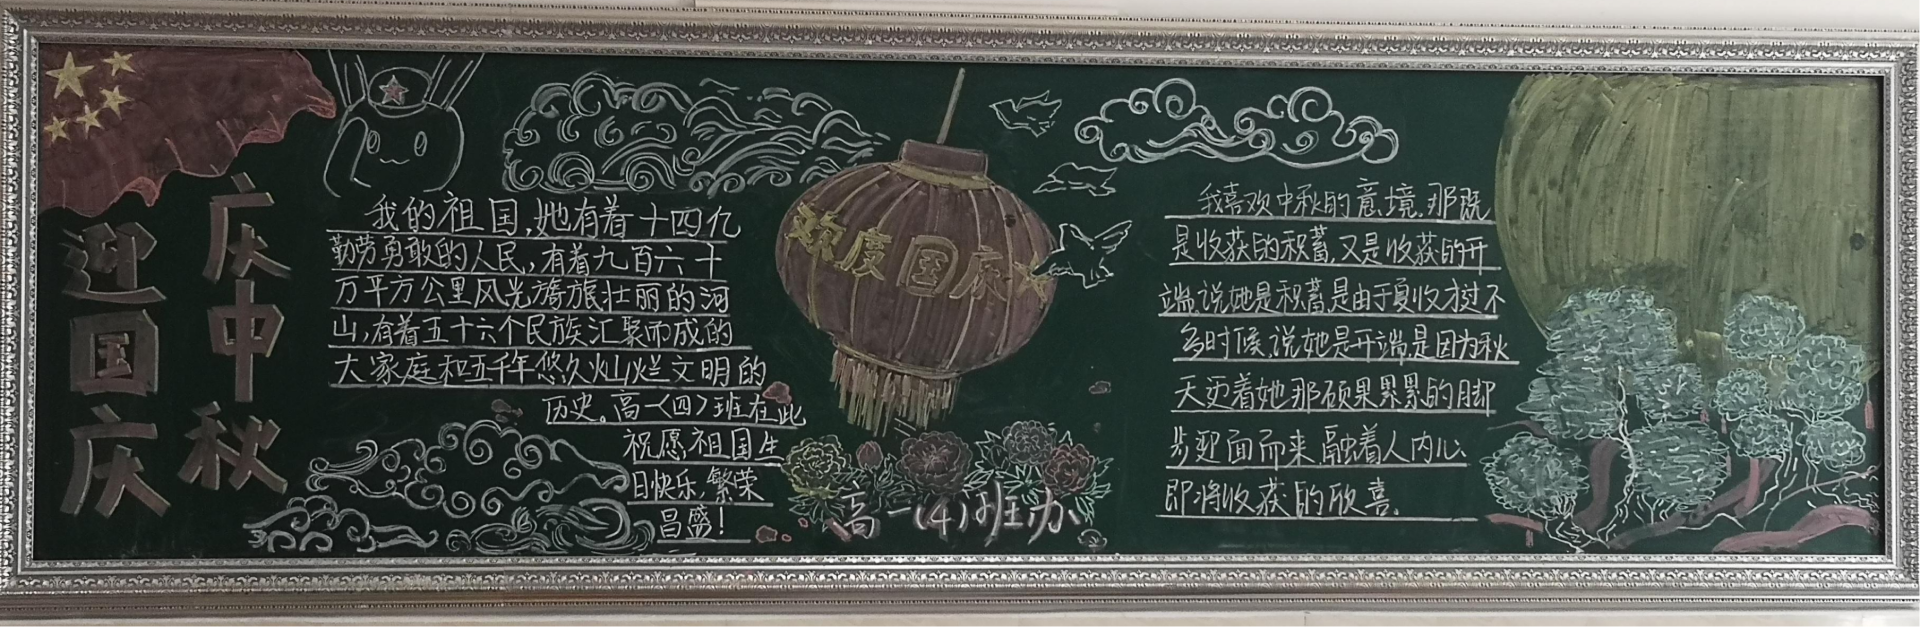 庆中秋
迎国庆
我的祖国,她有着十四亿
勤劳勇敢的人民,有着九百六十
万平方公里风光旖旎壮丽的河
山,有着五十六个民族汇聚而成的
大家庭和五千年悠久灿烂文明的
历史。高一(四)班在此
祝愿祖国生
日快乐,繁荣
昌盛!
欢度国庆
高一(4)班办
我喜欢中秋的意境,那既
是收获的积蓄,又是收获的开
端,说她是积蓄是由于夏收才过不
多时候,说她是开端,是因为秋
天更着她那硕果累累的脚
步迎面而来,融着人内心
即将收获的欣喜.